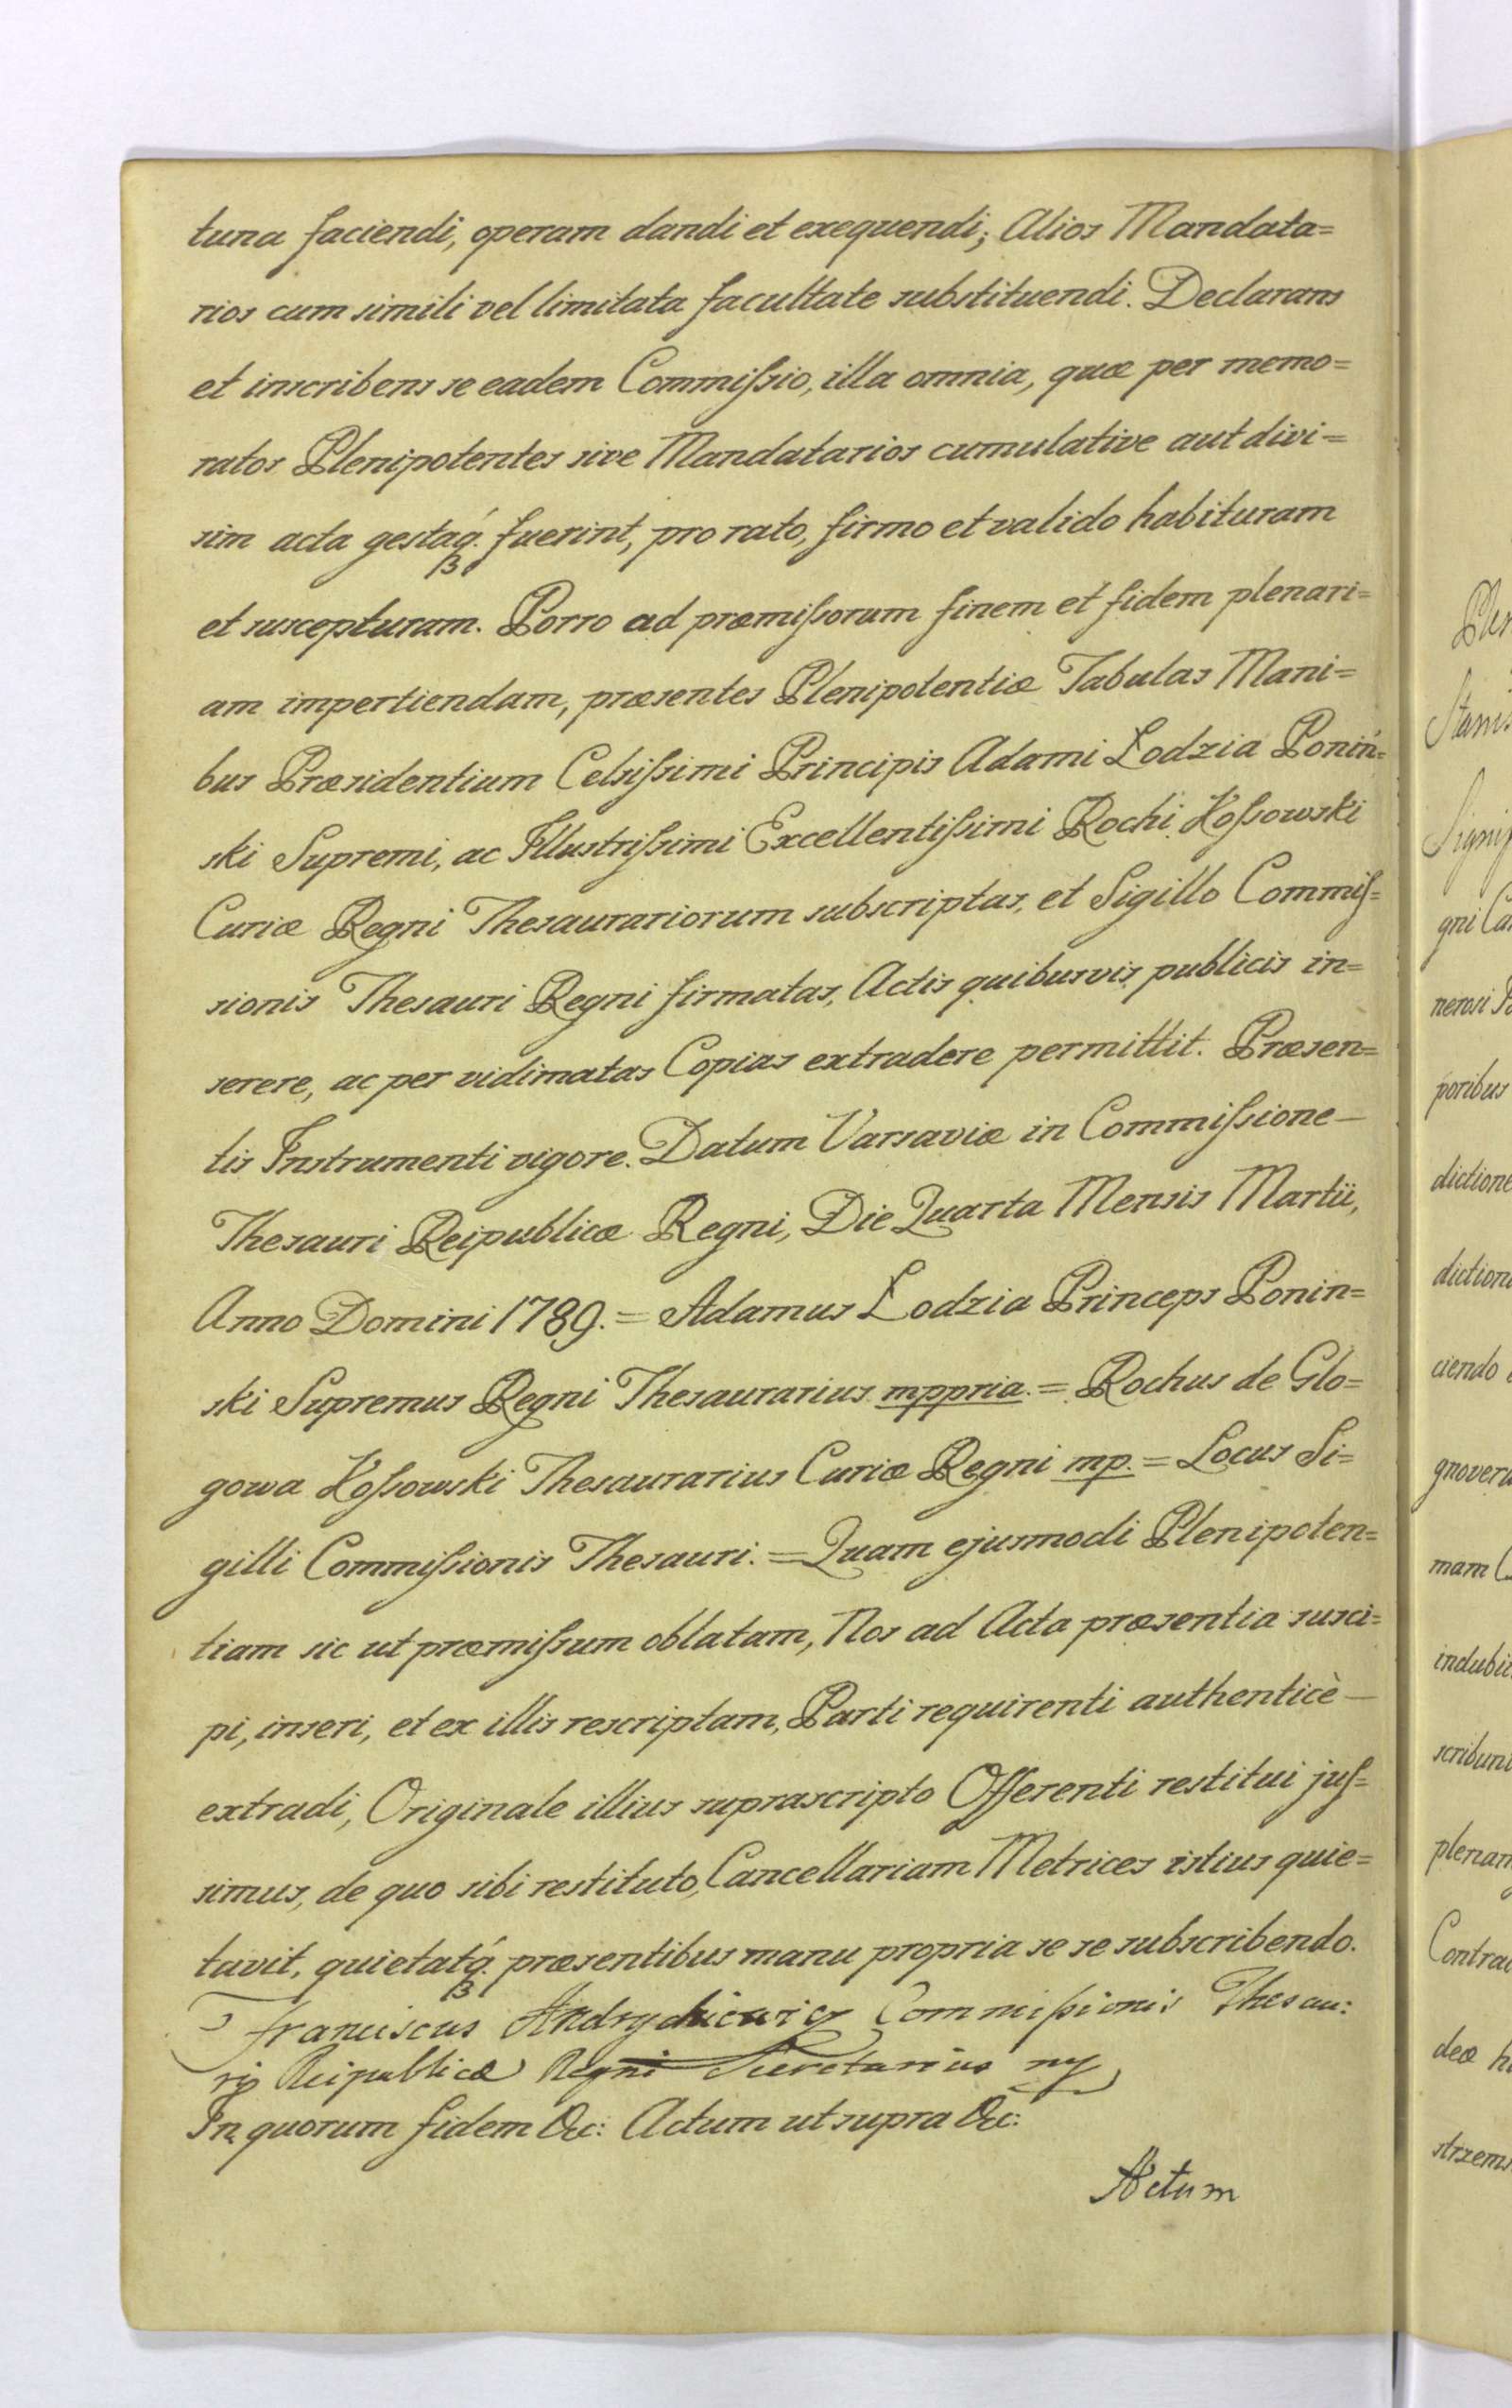 tuna faciendi, operam dandi et exequendi; Alios Mandata=
rios cum simili vel limitata facultate substituendi. Declarans
et inscribens se eadem Commiſsio, illa omnia, quæ per memo=
ratos Plenipotentes sive Mandatarios cumulative aut divi=
sim acta gestaq́. fuerint, pro rato, firmo et valido habituram
et suscepturam. Porro ad præmiſsorum finem et fidem plenari=
am impertiendam, præsentes Plenipotentiæ Tabulas Mani=
bus Præsidentium Celsiſsimi Principis Adami Łodzia Poniń=
ski Supremi, ac Illustriſsimi Excellentiſsimi Rochi Koſsowski
Curiæ Regni Thesaurariorum subscriptas, et Sigillo Commiſ=
sionis Thesauri Regni firmatas, Actis quibusvis publicis in=
serere, ac per vidimatas Copias extradere permittit. Præsen=
tis Instrumenti vigore. Datum Varsaviæ in Commiſsione—
Thesauri Reipublicæ Regni, Die Quarta Mensis Martii,
Anno Domini 1789. = Adamus Łodzia Princeps Ponin=
ski Supremus Regni Thesaurarius mppria. = Rochus de Glo=
gowa Koſsowski Thesaurarius Curiæ Regni mp. = Locus Si=
gilli Commiſsionis Thesauri. = Quam ejusmodi Plenipoten=
tiam sic ut præmiſsum oblatam, Nos ad Acta præsentia susci=
pi, inseri, et ex illis rescriptam, Parti requirenti authenticè—
extradi, Originale illius suprascripto Offerenti restitui juſ=
simus, de quo sibi restituto, Cancellariam Metrices istius quie=
tavit, quietatq́. præsentibus manu propria se se subscribendo.
Franciscus Andrychiewicz Commiſsionis Thesau:
rij Reipublicæ Regni Secretarius mp
In quorum fidem &c: Actum ut supra &c:
Actum